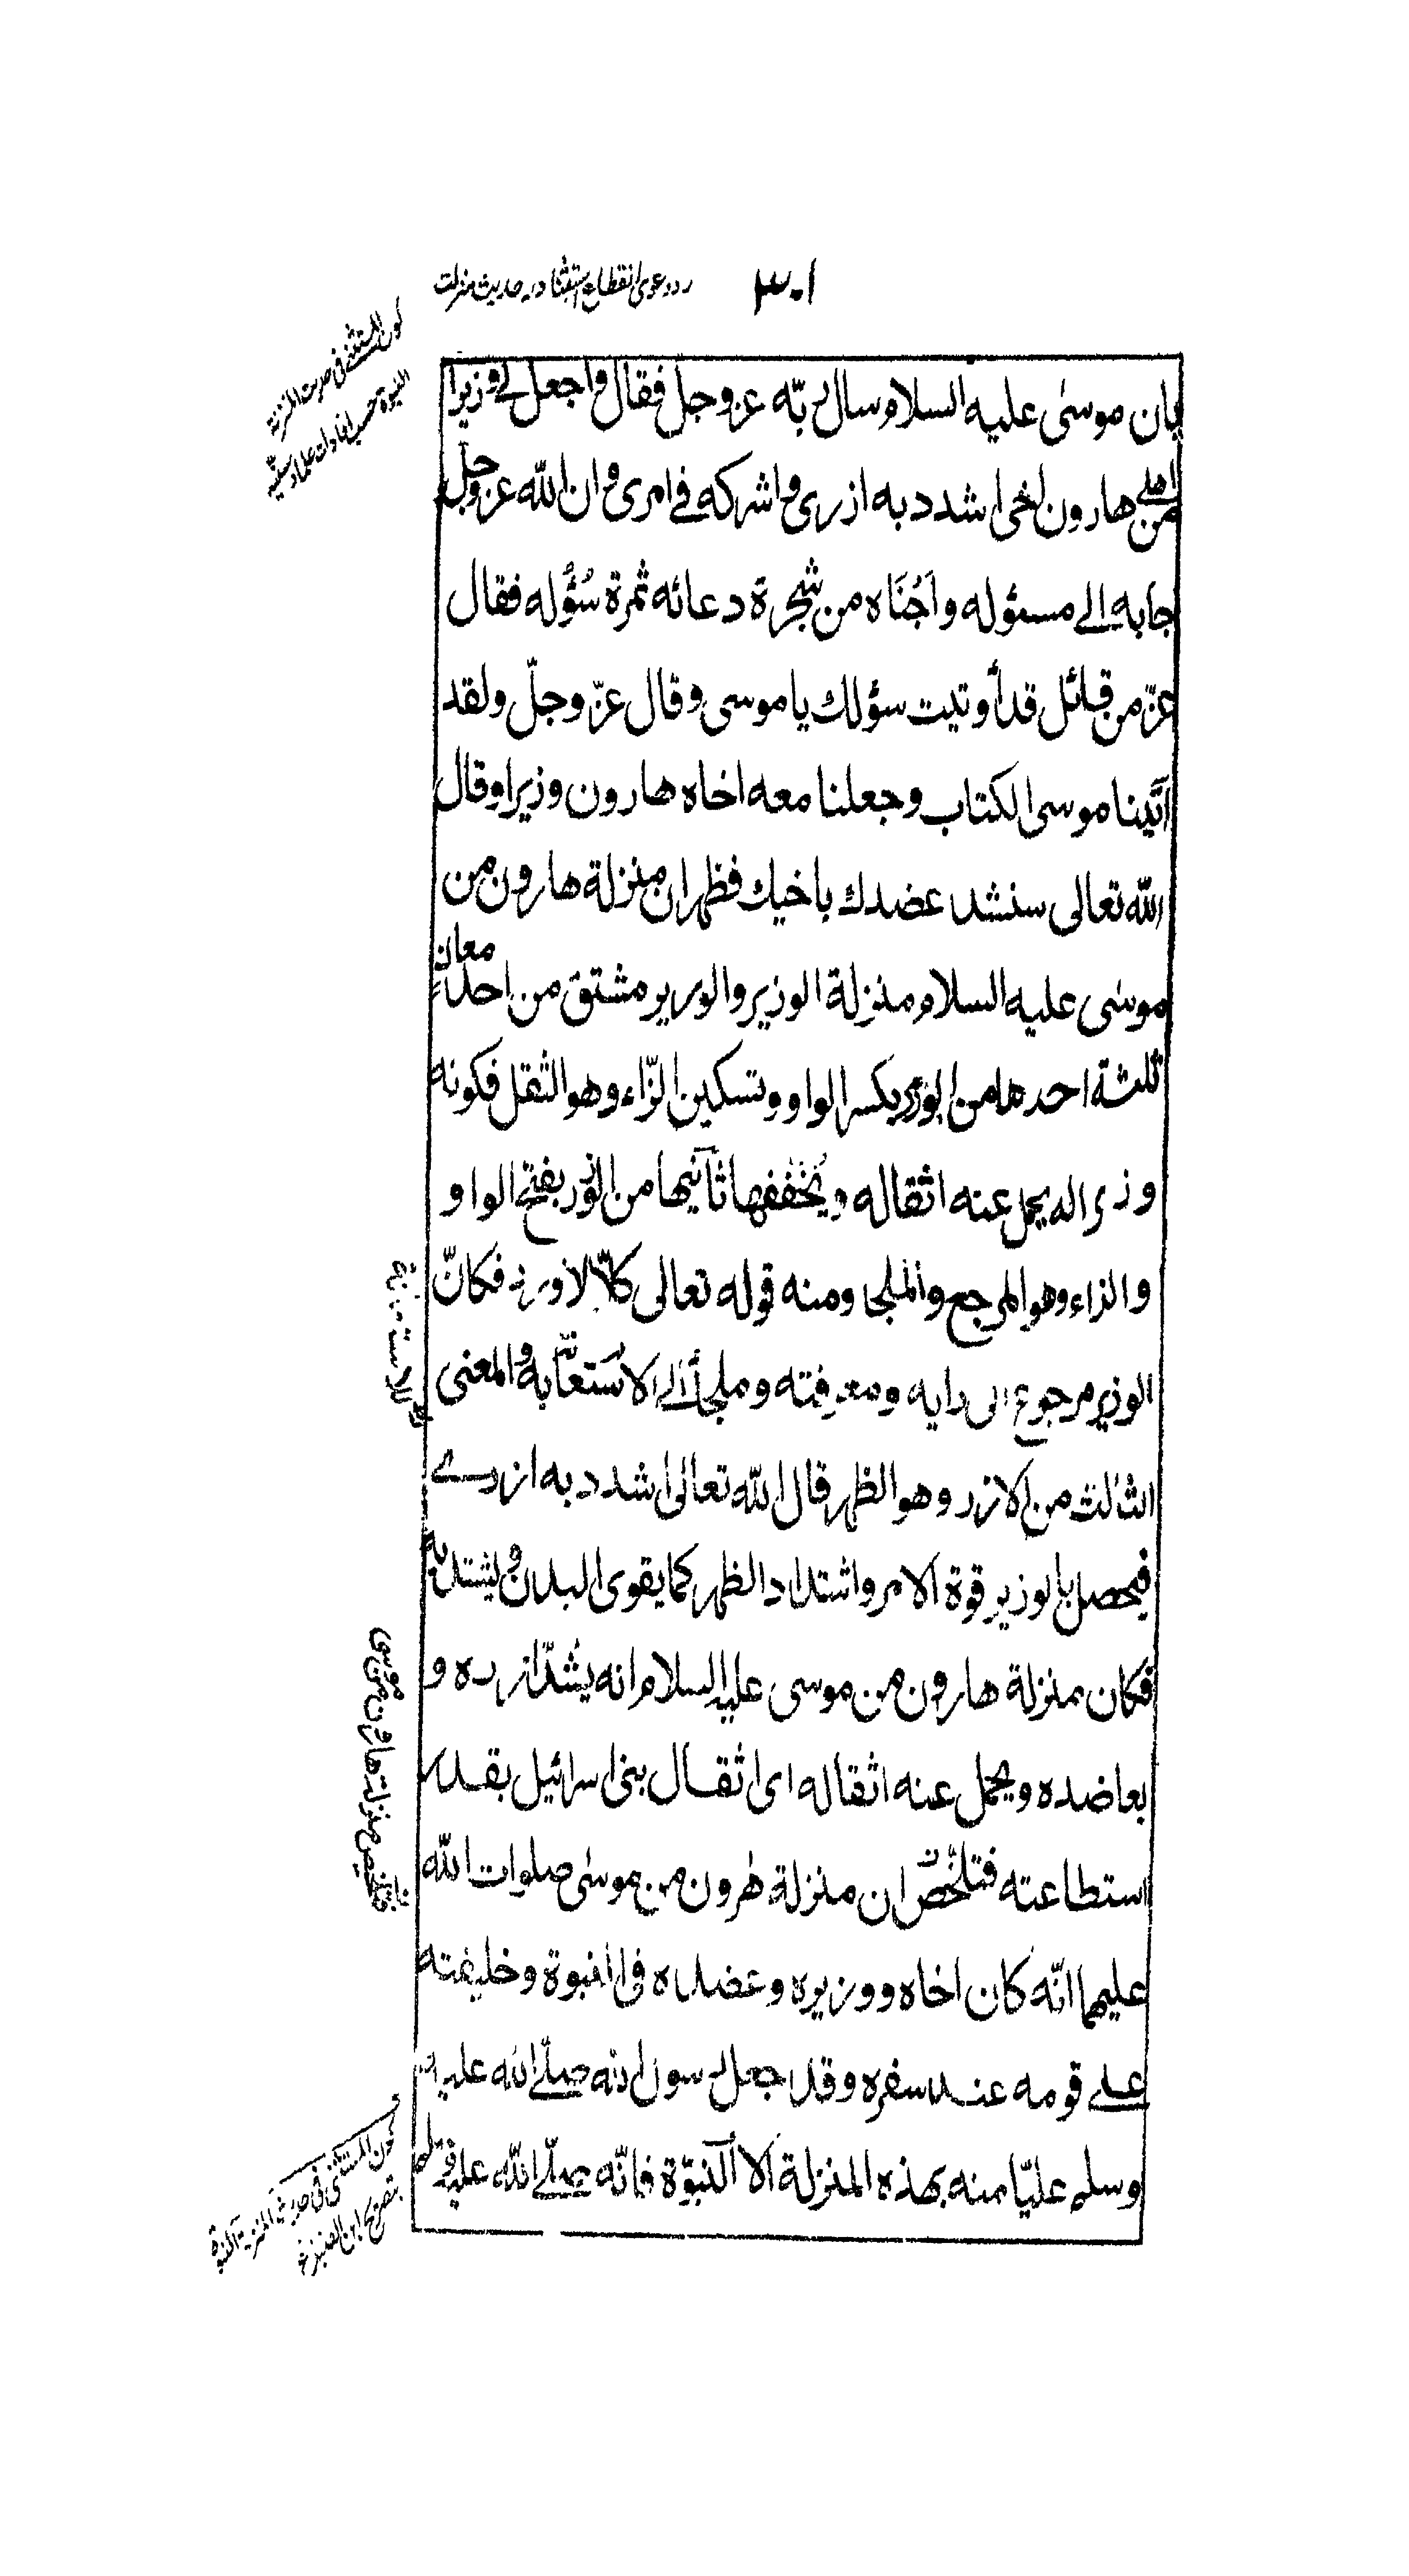 ٣٠١
رد دعوی انقطاع استثنا در حدیث منزلت
کون المستثنی فی حدیث المنزلة
النبوة حسب افادات علماء سنیّه
بان موسى عليه السلام سال ربّه عز وجل فقال واجعل لے وزيرا
من اهلے هارون اخى اشدد به ازرى واشركه فے امرى وان الله عز وجل
جابه الے مسئوله واَجْنَاه من شجرة دعائه ثمرة سُؤْله فقال
عزّ من قائل قد أوتيت سؤلك يا موسى وقال عزّ وجلّ ولقد
آتينا موسى الكتاب وجعلنا معه اخاه هارون وزيرا وقال
الله تعالى سنشد عضدك باخيك فظهر ان منزلة هارون من
موسى عليه السلام منزلة الوزير والوزير مشتق من احد معان
ثلثة احدها من الوزر بكسر الواو وتسكين الزّاء وهو الثقل فكونه
وزيرا له يحمل عنه اثقاله ويُخَفّفها ثانيها من الوَزَر بفتح الواو
والزاء وهو المرجع والملجا ومنه قوله تعالى كلّا لا وزر فكانّ
الوزير مرجوع الى رايه ومعرفته وملجأ الے الاستعانة به والمعنى
الثالث من الازر وهو الظهر قال الله تعالى اشدد به ازرے
فيحصل بالوزير قوة الامر واشتداد الظهر كما يقوى البدن ويشتد به
فكان منزلة هارون من موسى عليه السلام انه يشدّ ازره و
يعاضده ويحمل عنه اثقاله اى اثقال بنى اسرائيل بقدر
استطاعته فتلخّص ان منزلة هٰرون من موسى صلوات الله
عليهما انّه كان اخاه ووزيره وعضده فى النبوة وخليفته
علے قومه عند سفره وقد جعل رسول الله صلّے الله عليه
وسلم عليّا منه بهذه المنزلة الا النبوّة فانّه صلّے الله عليه
تلخيص منزلة هارون من موسى
كون المستثنى فى حديث المنزلة النبوة
بتصريح ابن